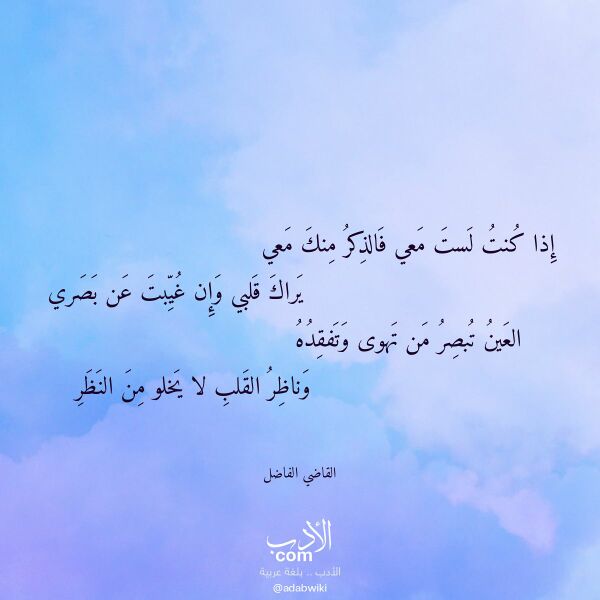 إِذا كُنتُ لَستَ مَعي فَالذِكرُ مِنكَ مَعي
يَراكَ قَلبي وَإِن غُيِّبتَ عَن بَصَري
العَينُ تُبصِرُ مَن تَهوى وَتَفقِدُهُ
وَناظِرُ القَلبِ لا يَخلو مِنَ النَظَرِ
القاضي الفاضل
الأدب
com
الأدب .. بلغة عربية
@adabwiki